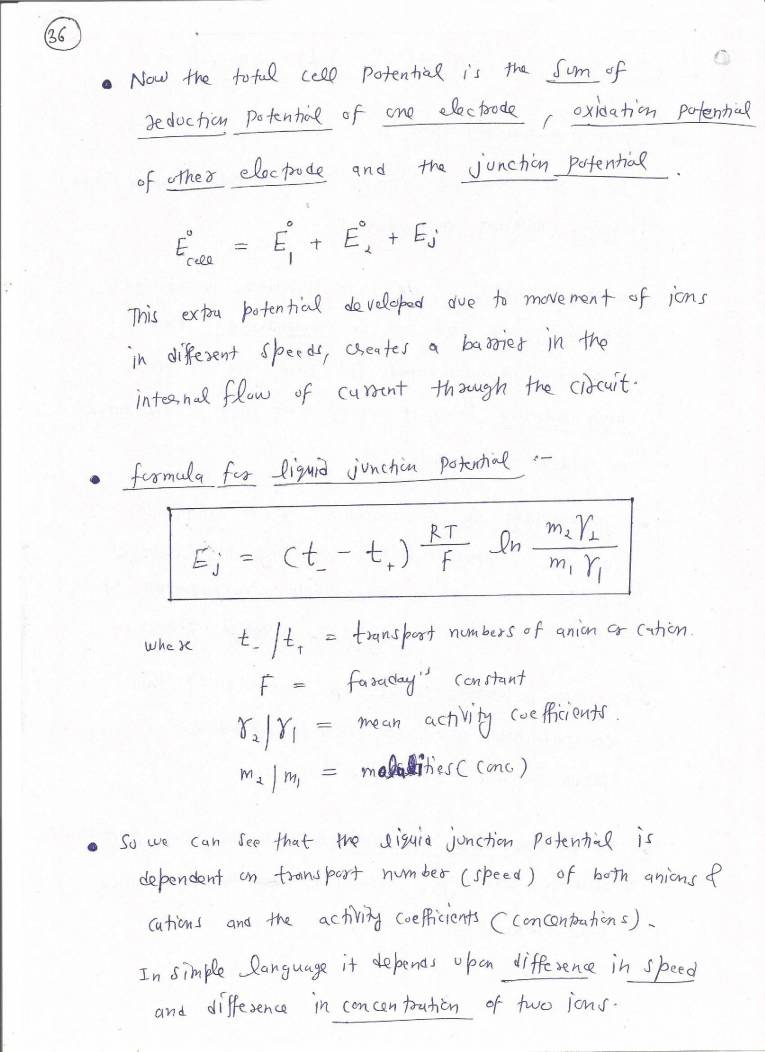 36
• Now the total cell Potential is the sum of
reduction Potential of one electrode, oxidation potential
of other electrode and the junction potential.
E°cell = E°1 + E°2 + Ej
This extra potential developed due to movement of ions
in different speeds, creates a barrier in the
internal flow of current through the circuit.
• formula for liquid junction potential :-
Ej = (t_ - t+) RT/F ln m2 γ2 / m1 γ1
where t_ / t+ = transport numbers of anion or cation.
F = faraday's constant
γ2/γ1 = mean activity coefficients.
m2 / m1 = molalities (conc)
• So we can see that the liquid junction Potential is
dependent on transport number (speed) of both anions &
cations and the activity coefficients (concentrations).
In simple language it depends upon difference in speed
and difference in concentration of two ions.